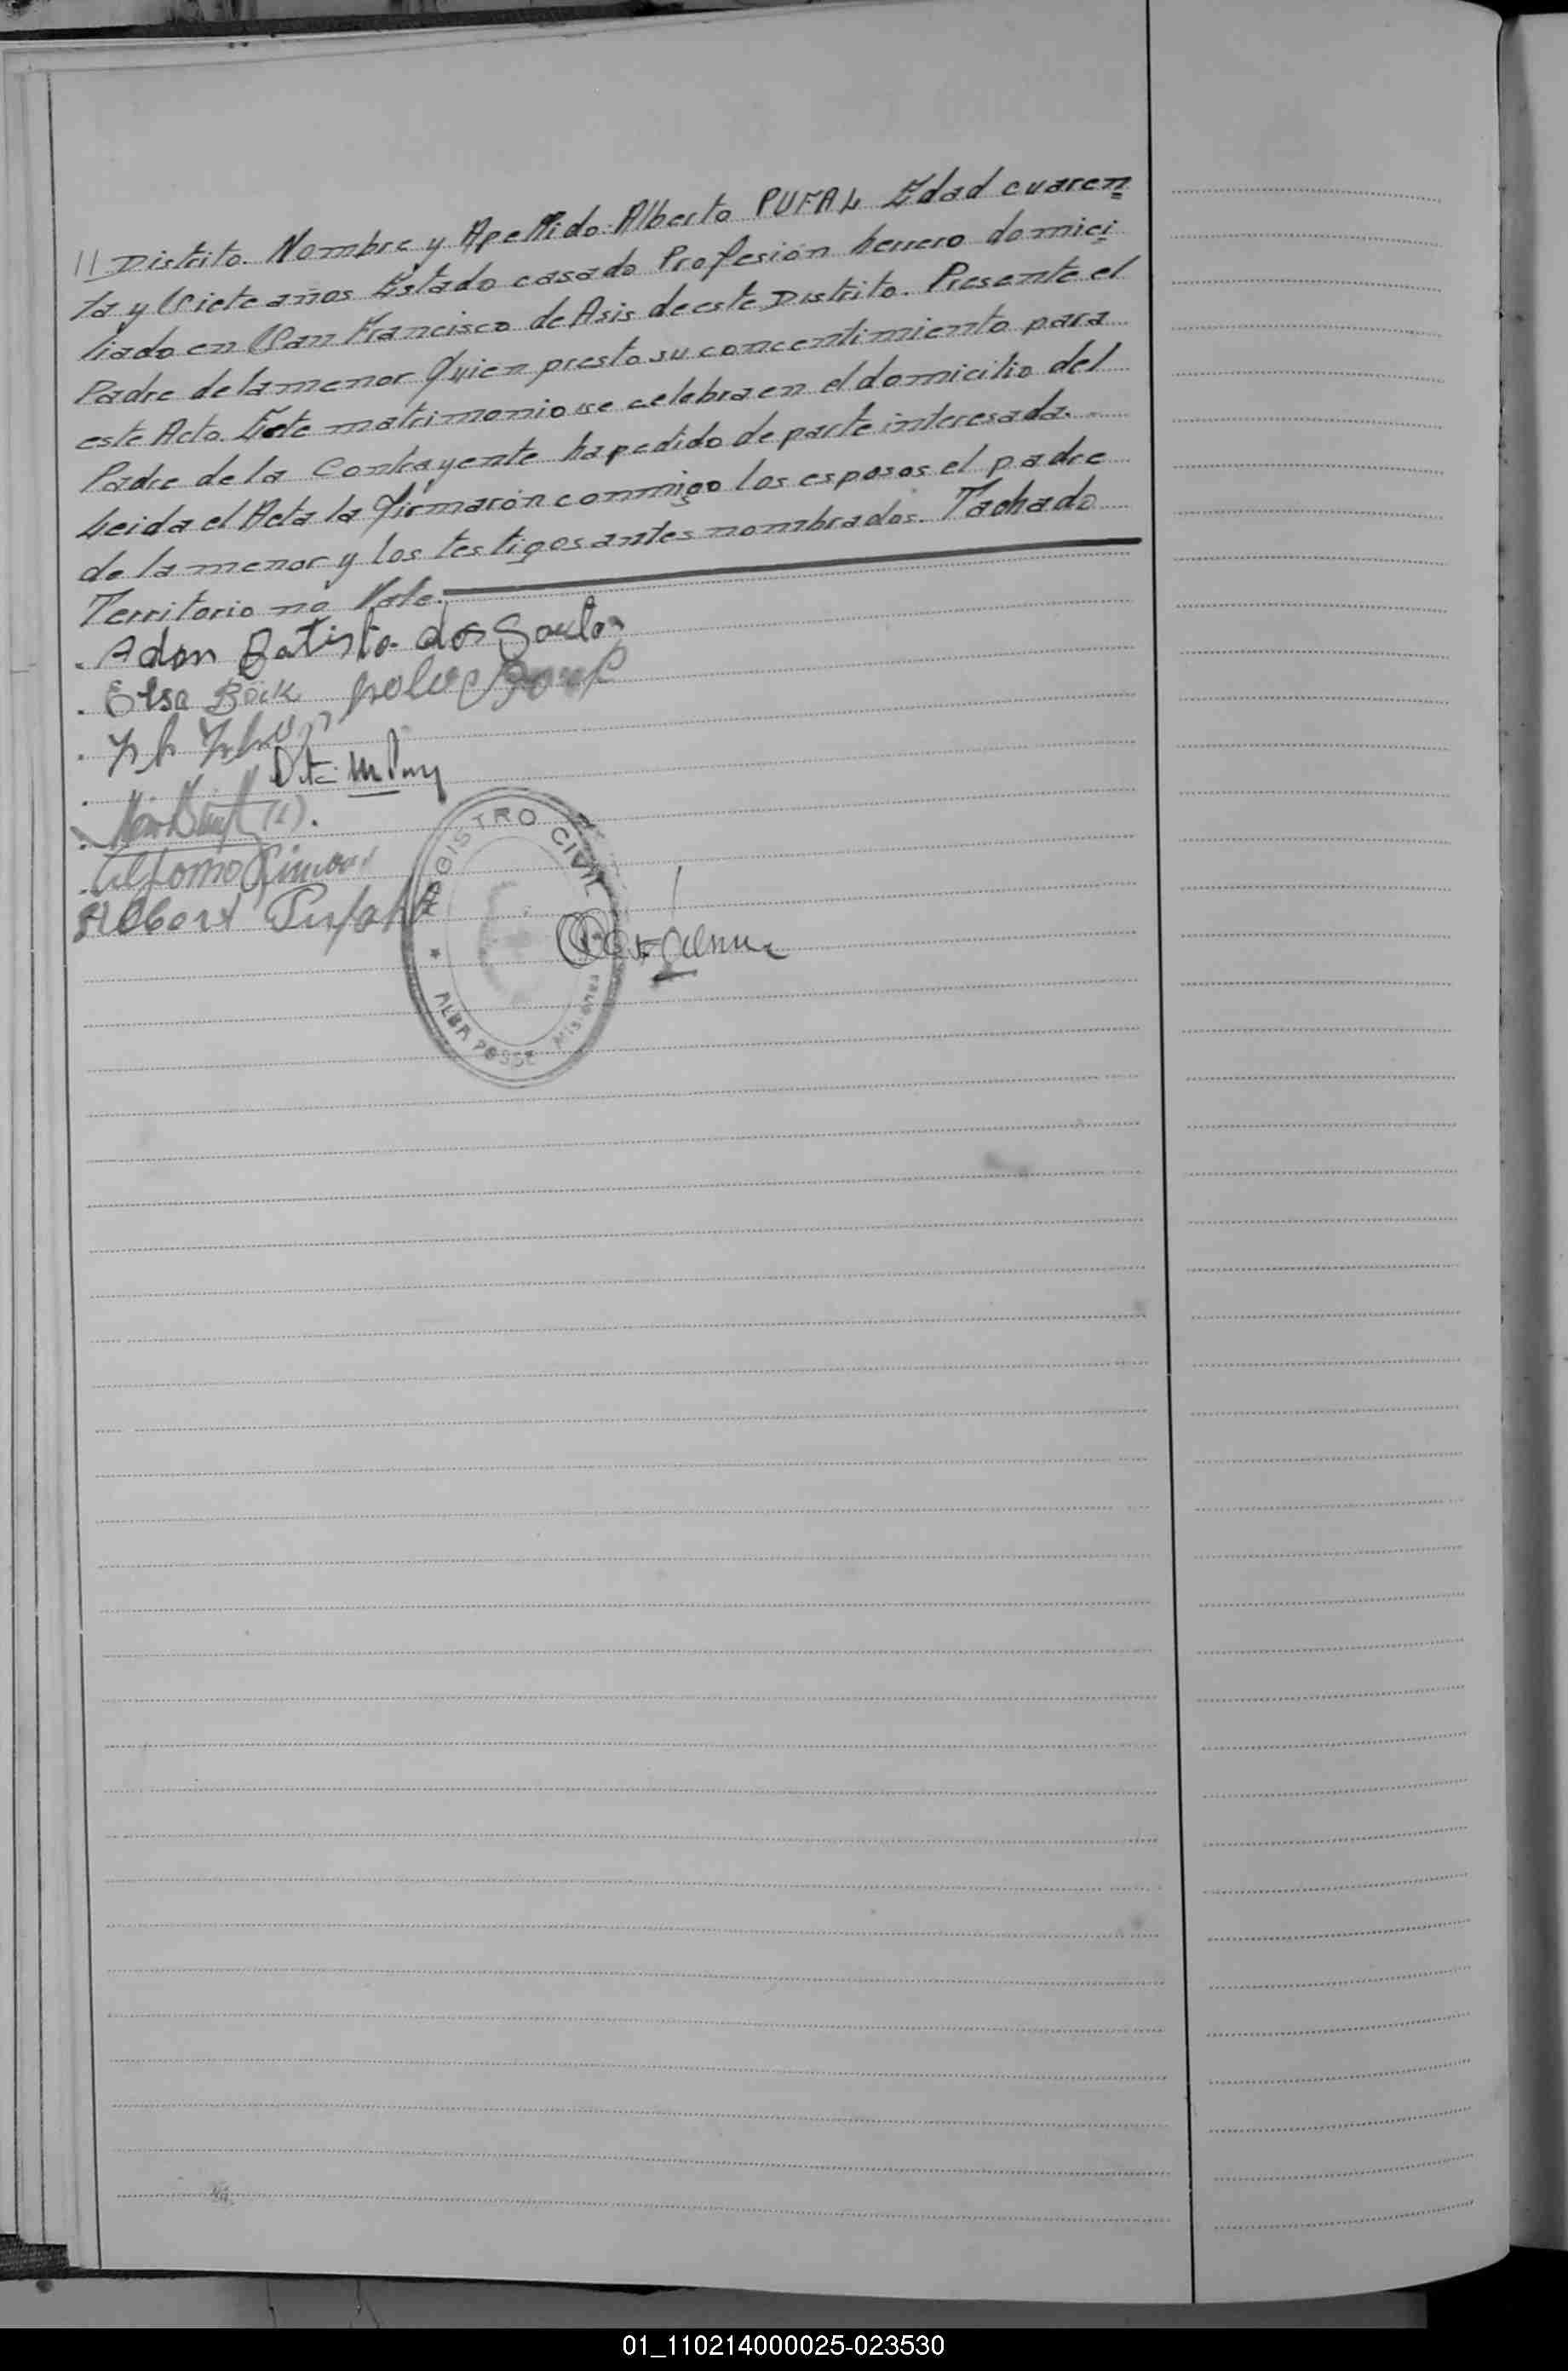 // Distrito. Nombre y Apellido Alberto PUFAL Edad cuaren
ta y Siete años Estado casado Profesión herrero domici
liado en San Francisco de Asis de este Distrito. Presente el
Padre de la menor Quien presto su concentimiento para
este Acto. Este matrimonio se celebra en el domicilio del
Padre de la Contrayente ha pedido de parte interesada.
Leida el Acta la Firmarón conmigo los esposos el padre
de la menor y los testigos antes nombrados. Tachado
Territorio no Vale.
Adan Batista dos Santos
Elsa Böck
Alfonso
Albert Pufahl
REGISTRO CIVIL
ALBA POSSE Misiones
01_110214000025-023530